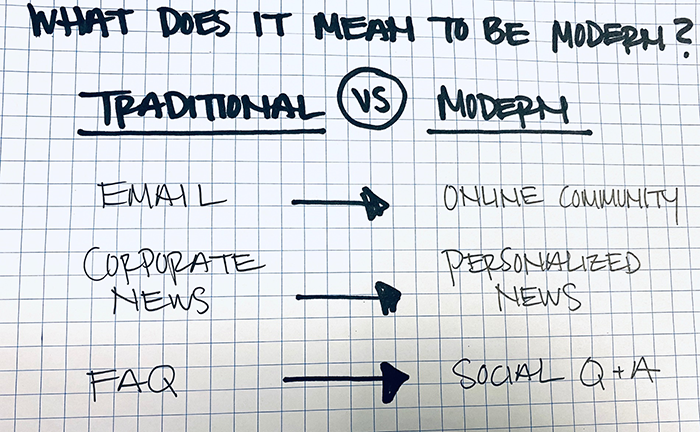 WHAT DOES IT MEAN TO BE MODERN?
TRADITIONAL VS MODERN
EMAIL ONLINE COMMUNITY
CORPORATE NEWS PERSONALIZED NEWS
FAQ SOCIAL Q+A